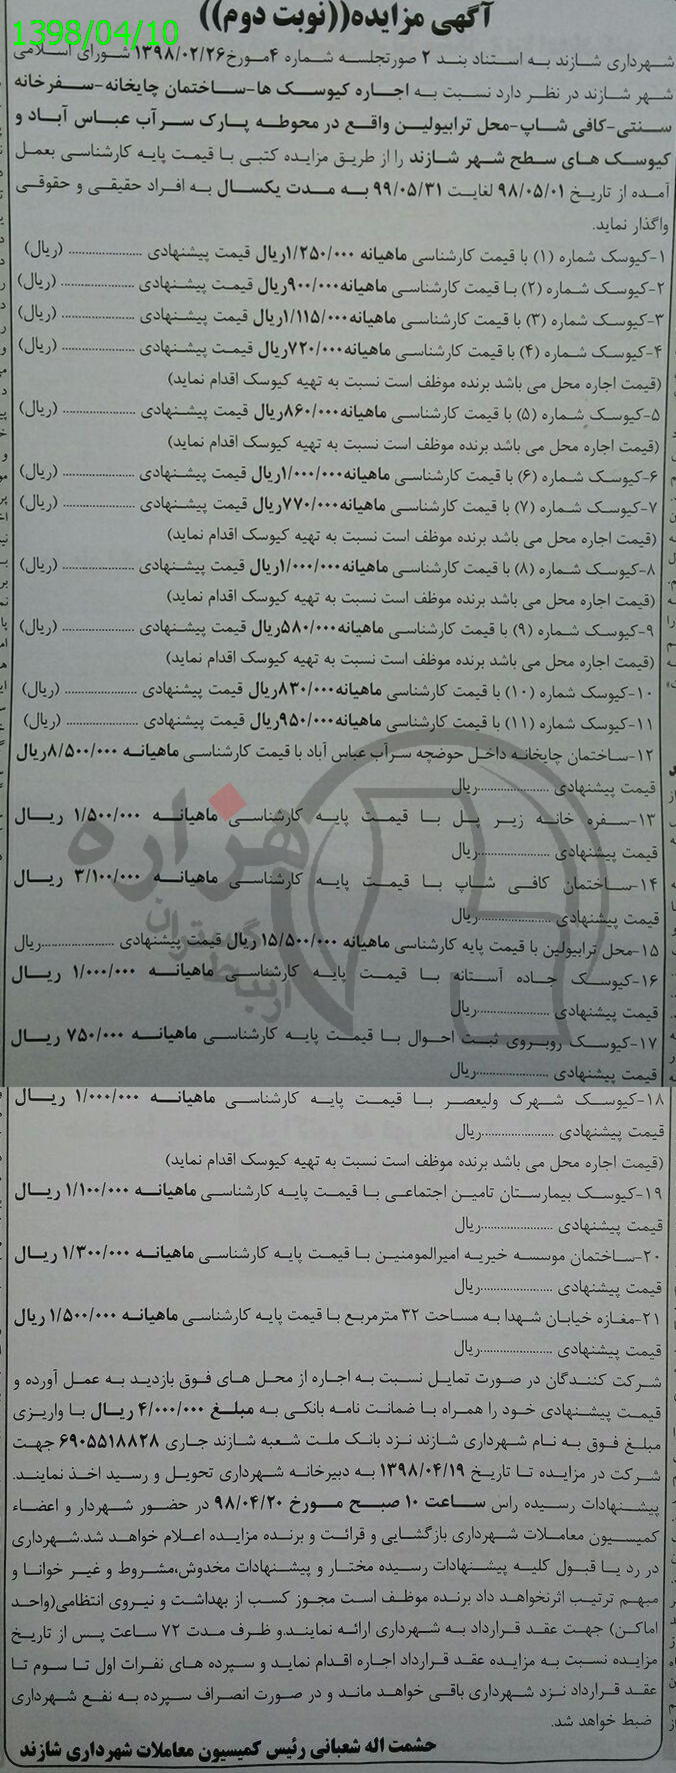 آگهی مزایده((نوبت دوم))
1398/04/10
شهرداری شازند به استناد بند ۲ صورتجلسه شماره ۴مورخ۱۳۹۸/۰۲/۲۶ شورای اسلامی
شهر شازند در نظر دارد نسبت به اجاره کیوسک ها-ساختمان چایخانه-سفرخانه
سنتی-کافی شاپ-محل ترابیولین واقع در محوطه پارک سرآب عباس آباد و
کیوسک های سطح شهر شازند را از طریق مزایده کتبی با قیمت پایه کارشناسی بعمل
آمده از تاریخ ۹۸/۰۵/۰۱ لغایت ۹۹/۰۵/۳۱ به مدت یکسال به افراد حقیقی و حقوقی
واگذار نماید.
۱-کیوسک شماره (۱) با قیمت کارشناسی ماهیانه ۱/۲۵۰/۰۰۰ریال قیمت پیشنهادی ...................... (ریال)
۲-کیوسک شماره (۲) با قیمت کارشناسی ماهیانه۹۰۰/۰۰۰ریال قیمت پیشنهادی ...................... (ریال)
۳-کیوسک شماره (۳) با قیمت کارشناسی ماهیانه۱/۱۱۵/۰۰۰ریال قیمت پیشنهادی ...................... (ریال)
۴-کیوسک شماره (۴) با قیمت کارشناسی ماهیانه۷۲۰/۰۰۰ریال قیمت پیشنهادی ...................... (ریال)
(قیمت اجاره محل می باشد برنده موظف است نسبت به تهیه کیوسک اقدام نماید)
۵-کیوسک شماره (۵) با قیمت کارشناسی ماهیانه۸۶۰/۰۰۰ریال قیمت پیشنهادی ...................... (ریال)
(قیمت اجاره محل می باشد برنده موظف است نسبت به تهیه کیوسک اقدام نماید)
۶-کیوسک شماره (۶) با قیمت کارشناسی ماهیانه۱/۰۰۰/۰۰۰ریال قیمت پیشنهادی ...................... (ریال)
۷-کیوسک شماره (۷) با قیمت کارشناسی ماهیانه۷۷۰/۰۰۰ریال قیمت پیشنهادی ...................... (ریال)
(قیمت اجاره محل می باشد برنده موظف است نسبت به تهیه کیوسک اقدام نماید)
۸-کیوسک شماره (۸) با قیمت کارشناسی ماهیانه۱/۰۰۰/۰۰۰ریال قیمت پیشنهادی ...................... (ریال)
(قیمت اجاره محل می باشد برنده موظف است نسبت به تهیه کیوسک اقدام نماید)
۹-کیوسک شماره (۹) با قیمت کارشناسی ماهیانه۵۸۰/۰۰۰ریال قیمت پیشنهادی ...................... (ریال)
(قیمت اجاره محل می باشد برنده موظف است نسبت به تهیه کیوسک اقدام نماید)
۱۰-کیوسک شماره (۱۰) با قیمت کارشناسی ماهیانه۸۳۰/۰۰۰ریال قیمت پیشنهادی ...................... (ریال)
۱۱-کیوسک شماره (۱۱) با قیمت کارشناسی ماهیانه۹۵۰/۰۰۰ریال قیمت پیشنهادی ...................... (ریال)
۱۲-ساختمان چایخانه داخل حوضچه سرآب عباس آباد با قیمت کارشناسی ماهیانه ۸/۵۰۰/۰۰۰ریال
قیمت پیشنهادی ......................ریال
۱۳-سفره خانه زیر پل با قیمت پایه کارشناسی ماهیانه ۱/۵۰۰/۰۰۰ ریال
قیمت پیشنهادی ......................ریال
۱۴-ساختمان کافی شاپ با قیمت پایه کارشناسی ماهیانه ۳/۱۰۰/۰۰۰ ریال
قیمت پیشنهادی ......................ریال
۱۵-محل ترابیولین با قیمت پایه کارشناسی ماهیانه ۱۵/۵۰۰/۰۰۰ ریال قیمت پیشنهادی ......................ریال
۱۶-کیوسک جاده آستانه با قیمت پایه کارشناسی ماهیانه ۱/۰۰۰/۰۰۰ ریال
قیمت پیشنهادی ......................ریال
۱۷-کیوسک روبروی ثبت احوال با قیمت پایه کارشناسی ماهیانه ۷۵۰/۰۰۰ ریال
قیمت پیشنهادی ......................ریال
هزاره
گستران
ارتباط
۱۸-کیوسک شهرک ولیعصر با قیمت پایه کارشناسی ماهیانه ۱/۰۰۰/۰۰۰ ریال
قیمت پیشنهادی ......................ریال
(قیمت اجاره محل می باشد برنده موظف است نسبت به تهیه کیوسک اقدام نماید)
۱۹-کیوسک بیمارستان تامین اجتماعی با قیمت پایه کارشناسی ماهیانه ۱/۱۰۰/۰۰۰ ریال
قیمت پیشنهادی ......................ریال
۲۰-ساختمان موسسه خیریه امیرالمومنین با قیمت پایه کارشناسی ماهیانه ۱/۳۰۰/۰۰۰ ریال
قیمت پیشنهادی ......................ریال
۲۱-مغازه خیابان شهدا به مساحت ۳۲ مترمربع با قیمت پایه کارشناسی ماهیانه ۱/۵۰۰/۰۰۰ ریال
قیمت پیشنهادی ......................ریال
شرکت کنندگان در صورت تمایل نسبت به اجاره از محل های فوق بازدید به عمل آورده و
قیمت پیشنهادی خود را همراه با ضمانت نامه بانکی به مبلغ ۴/۰۰۰/۰۰۰ ریال با واریزی
مبلغ فوق به نام شهرداری شازند نزد بانک ملت شعبه شازند جاری ۶۹۰۵۵۱۸۸۲۸ جهت
شرکت در مزایده تا تاریخ ۱۳۹۸/۰۴/۱۹ به دبیرخانه شهرداری تحویل و رسید اخذ نمایند.
پیشنهادات رسیده راس ساعت ۱۰ صبح مورخ ۹۸/۰۴/۲۰ در حضور شهردار و اعضاء
کمیسیون معاملات شهرداری بازگشایی و قرائت و برنده مزایده اعلام خواهد شد.شهرداری
در رد یا قبول کلیه پیشنهادات رسیده مختار و پیشنهادات مخدوش،مشروط و غیر خوانا و
مبهم ترتیب اثرنخواهد داد برنده موظف است مجوز کسب از بهداشت و نیروی انتظامی(واحد
اماکن) جهت عقد قرارداد به شهرداری ارائه نمایند.و ظرف مدت ۷۲ ساعت پس از تاریخ
مزایده نسبت به مزایده عقد قرارداد اجاره اقدام نماید و سپرده های نفرات اول تا سوم تا
عقد قرارداد نزد شهرداری باقی خواهد ماند و در صورت انصراف سپرده به نفع شهرداری
ضبط خواهد شد.
حشمت اله شعبانی رئیس کمیسیون معاملات شهرداری شازند